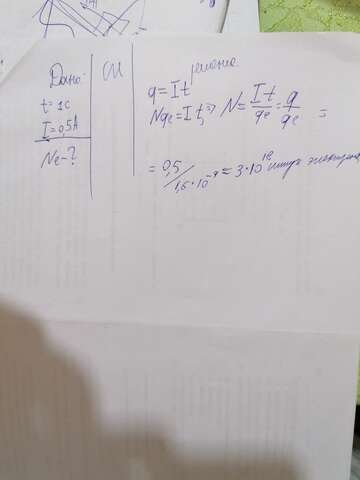 Дано:
t = 1с
I = 0,5А
Nе - ?
СИ
решение
q = It
Nqe = It => N = It/qe = q/qe =
= 0,5/1,6·10⁻⁹ = 3·10¹⁸ штук